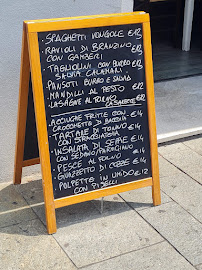 SPAGHETTI VONGOLE €12
RAVIOLI DI BRANZINO
CON GAMBERI €13
TAGLIOLINI CON BURRO
SALVIA CALAMARI
PANSOTI BURRO E SALVIA
MANDILLI AL PESTO €12
LASAGNE AL FORNO €12
ACCIUGHE FRITTE CON
CROCCHETTA DI BACCALÀ €14
TARTARE DI TONNO €14
CON STRACCIATELLA
INSALATA DI SEPPIE €14
CON SEDANO/PARMIGIANO
PESCE AL FORNO €14
GUAZZETTO DI COZZE €14
POLPETTE IN UMIDO €12
CON PISELLI